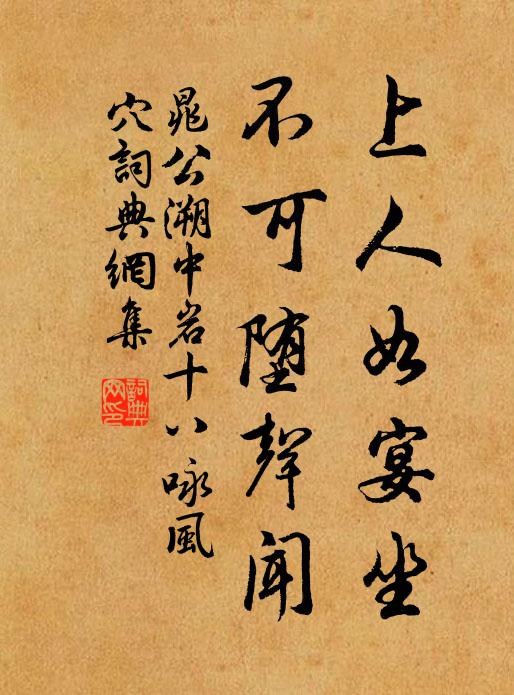 上人如宴坐
不可墮聲聞
晁公溯中岩十八咏風
穴詞典網集
詞典
网印